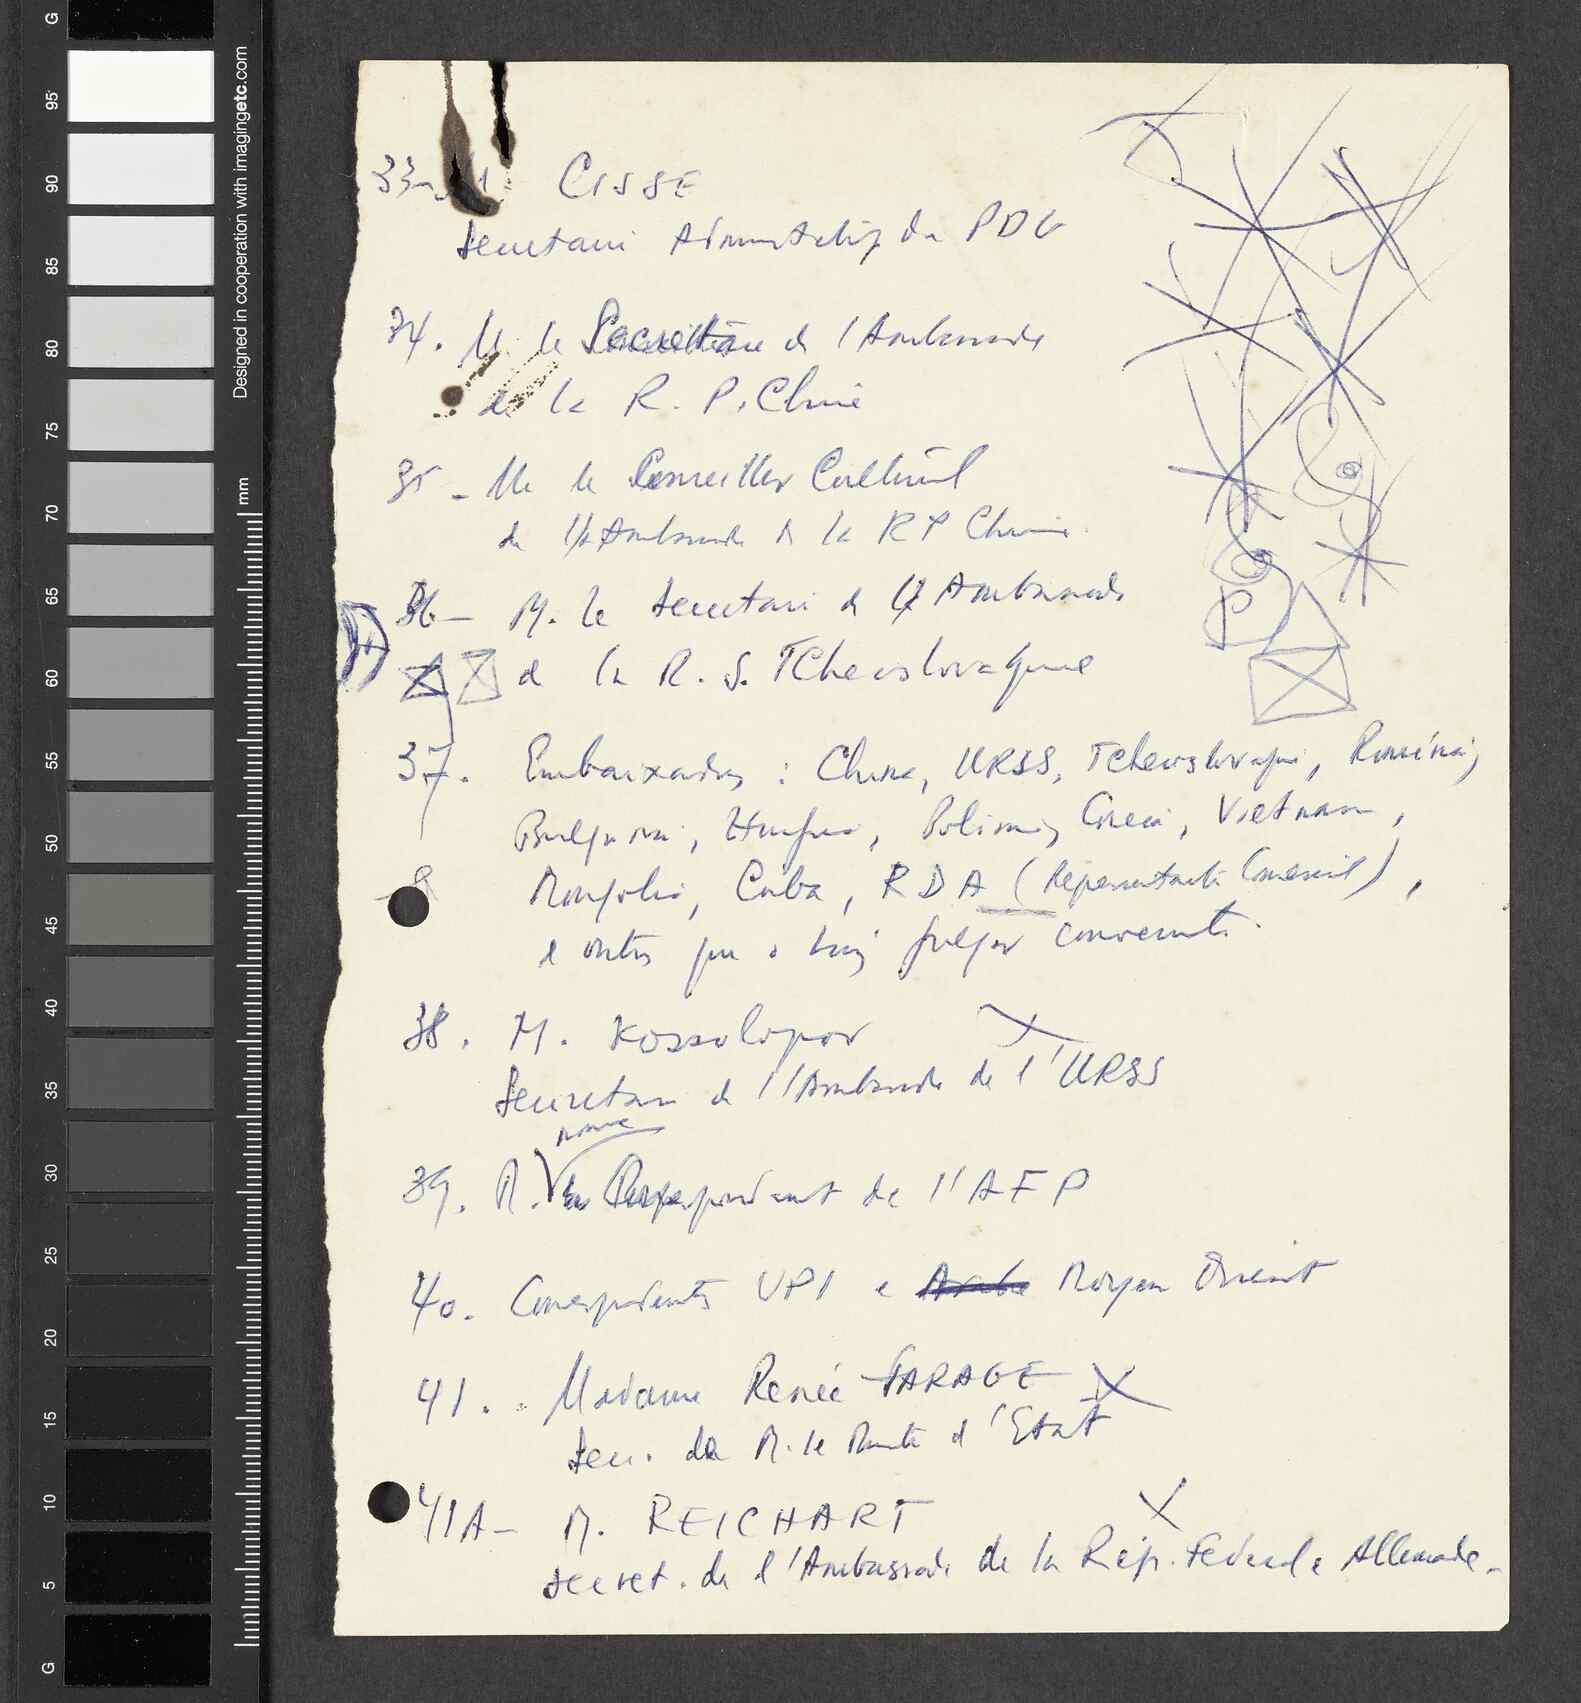 33- M CISSE
Secretaire Administratif du PDG
34. M. le Secretaire de l'Ambassade
de la R. P. Chine
35 - M. le Conseiller Culturel
de l'Ambassade de la RP Chine
36 - M. le Secretaire de l'Ambassade
de la R. S. Tchecoslovaquie
37. Embaixadas : China, URSS, Tchecoslovaquie, Roménia,
Bulgaria, Hungria, Polonia, Coreia, Vietnam,
Mongolia, Cuba, RDA (Representante Comercial),
e outros que o julgar conveniente.
38. M. Kossolapov
Secretaire de l'Ambassade de l'URSS
39. M. le Correspondant de l'AFP
40. Correspondents UPI e Moyen Orient
41. Madame Renée FARAGE
Secr. de M. le Ministre d'Etat
41A - M. REICHART
secret. de l'Ambassade de la Rép. Féderale Allemande -
G
95
90
85
80
75
70
65
60
55
50
45
40
35
30
25
20
15
10
5
G
Designed in cooperation with imagingetc.com
mm